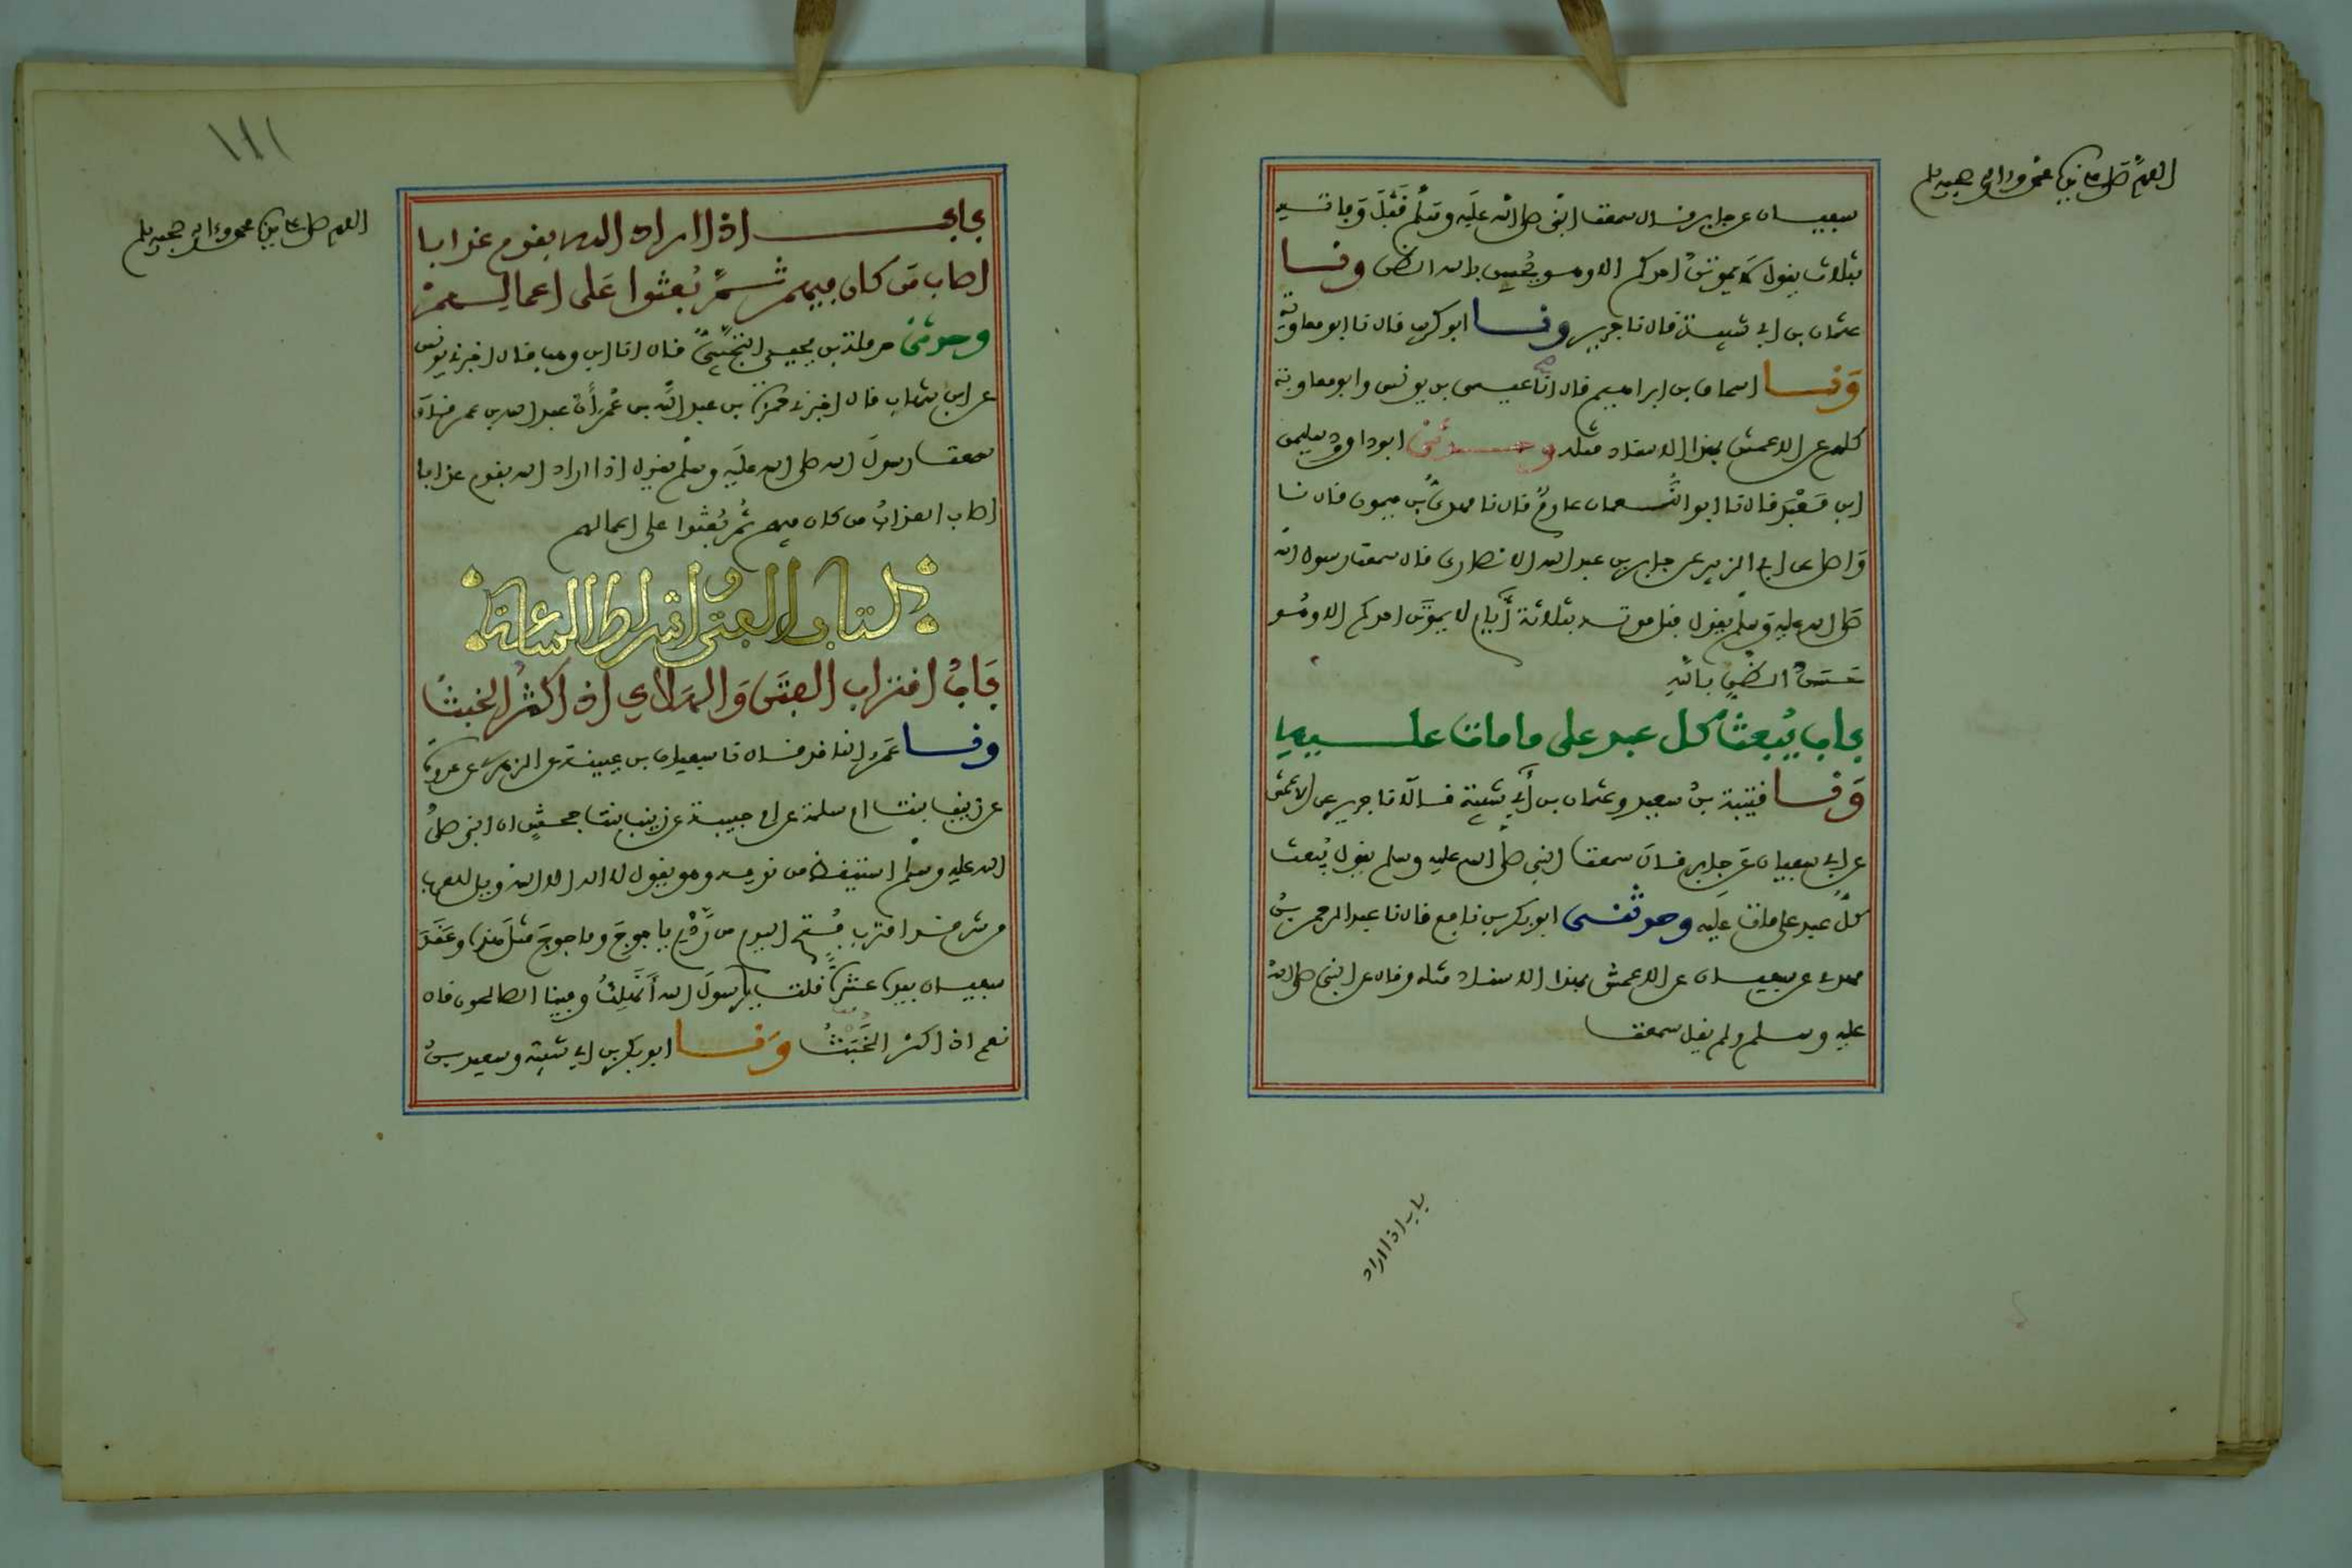 اللهم صل على نبيك محمد وءاله وصحبه وسلم
سفيان عن جابر قال سمعت النبي صلى الله عليه وسلم قبل وفاته
بثلاث يقول لا يموتن احدكم الا وهو يحسن بالله الظن ونا
عثمان بن ابي شيبة قال نا جرير ونا ابو كريب قال نا ابو معاوية
ونا اسحاق بن ابراهيم قال انا عيسى بن يونس وابو معاوية
كلهم عن الاعمش بهذا الاسناد مثله وحدثني ابو داوود سليمن
ابن معبد قال نا ابو النعمان عارم قال نا مهدي بن ميمون قال نا
واصل عن ابي الزبير عن جابر بن عبد الله الانصاري قال سمعت رسول الله
صلى الله عليه وسلم يقول قبل موته بثلاثة أيام لا يموتن احدكم الا وهو
حسن الظن بالله
باب يُبعث كل عبد على ما مات عليه
ونا قتيبة بن سعيد وعثمان بن أبي شيبة قالا نا جرير عن الاعمش
عن ابي سفيان عن جابر قال سمعت النبي صلى الله عليه وسلم يقول يُبعث
كل عبد على مامات عليه وحدثني ابو بكر بن نافع قال نا عبد الرحمن بن
مهدي عن سفيان عن الاعمش بهذا الاسناد مثله وقال عن النبي صلى الله
عليه وسلم ولم يقل سمعت
باب اذا اراد
١٨١
اللهم صل على نبيك محمد وءاله وصحبه وسلم
باب اذا اراد الله بقوم عذابا
اصاب من كان فيهم ثم بُعثوا على اعمالهم
وحدثني حرملة بن يحيى التجيبي قال انا ابن وهب قال اخبرني يونس
عن ابن شهاب قال اخبرني حمزة بن عبد الله بن عُمر أن عبد الله بن عمر قال
سمعت رسول الله صلى الله عليه وسلم يقول اذا اراد الله بقوم عذابا
اصاب العذابُ من كان فيهم ثم بُعثوا على اعمالهم
كتاب الفتن واشراط الساعة
باب اقتراب الفتن والهلاك اذا كثر الخبث
ونا عمرو الناقد قال نا سفيان بن عيينة عن الزهري عن عروة
عن زينب بنت ام سلمة عن ام حبيبة عن زينب بنت جحش ان النبي صلى
الله عليه وسلم استيقظ من نومه وهو يقول لا اله الا الله ويل للعرب
من شر قد اقترب فُتح اليوم من ردم ياجوج وماجوج مثل هذه وعقد
سفيان بيده عشرة قلت يا رسول الله أنهلك وفينا الصالحون قال
نعم اذا كثر الخَبَث ونا ابو بكر بن ابي شيبة وسعيد بن